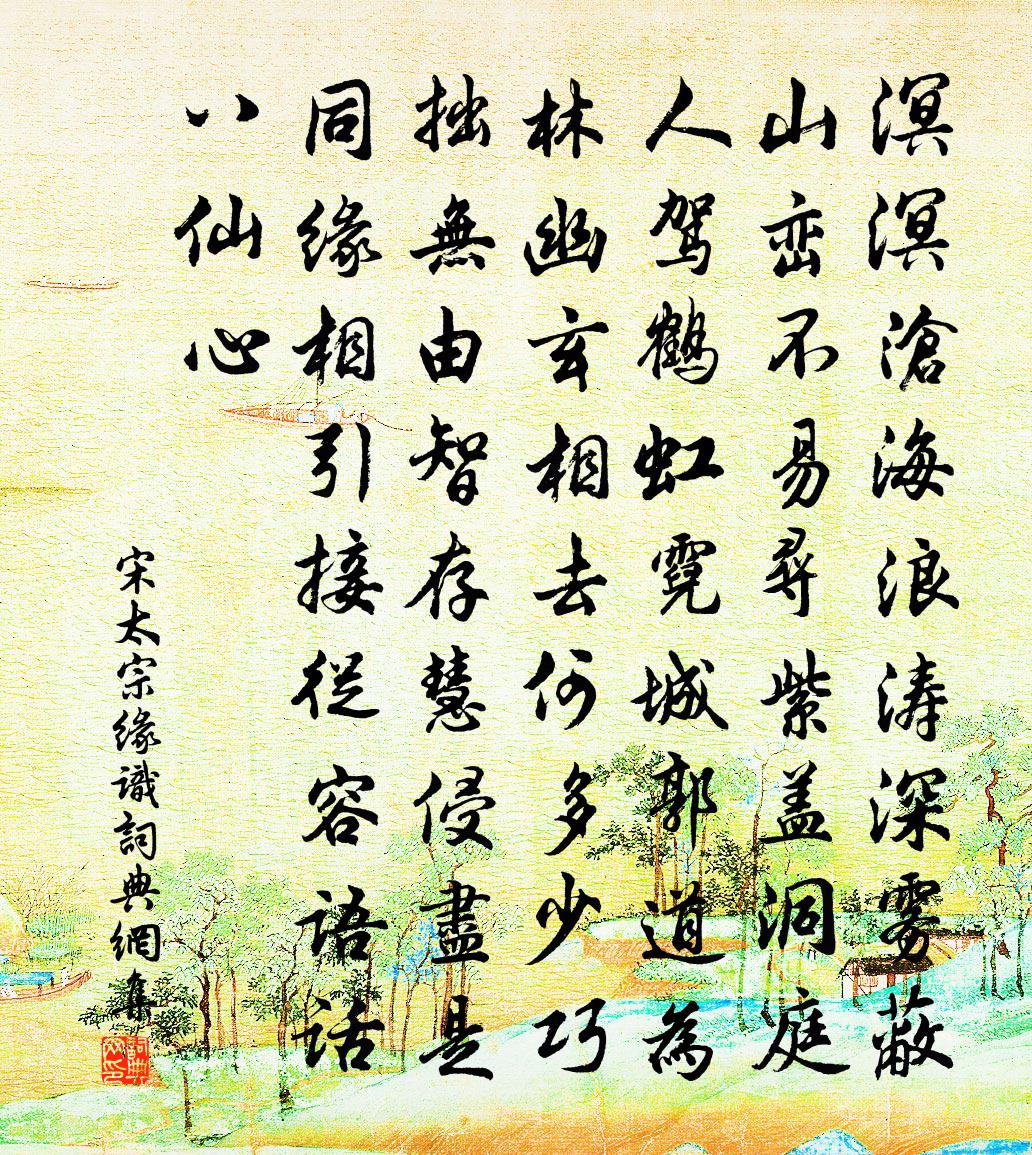 溟溟滄海浪涛深雾蔽
山峦不易尋紫盖洞庭
人驾鹤虹霓城郭道為
林幽玄相去何多少巧
拙無由智存慧侵盡是
同缘相引接從容语话
八仙心
宋太宗缘識詞典網集